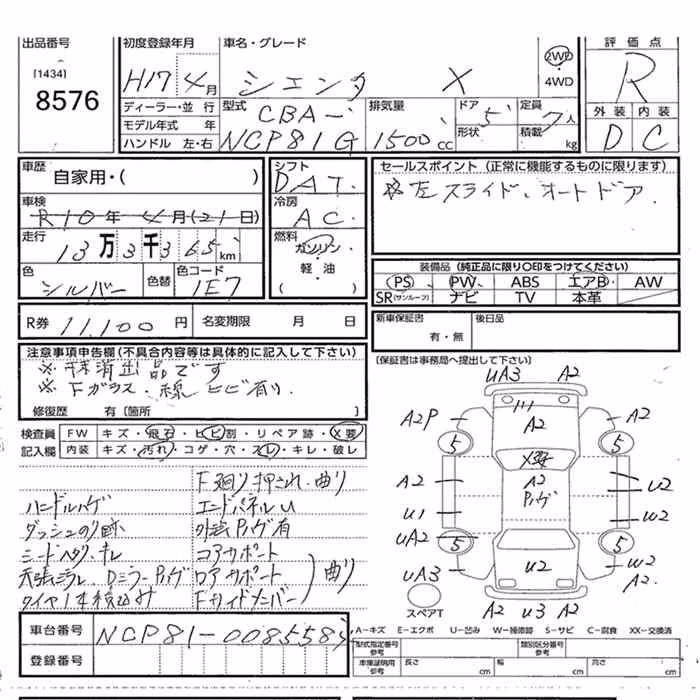 出品番号
[1434]
8576
初度登録年月
H17年4月
車名・グレード
シエンタ X
2WD
4WD
評価点
R
外装 内装
D C
ディーラー・並行
モデル年式 年
ハンドル 左・右
型式
CBA-
NCP81G
排気量
1500cc
ドア
5
形状
定員
7人
積載
kg
車歴
自家用・( )
車検
R10年4月(21日)
走行
13万3千365km
色
シルバー
色替
色コード
1E7
シフト
DAT
冷房
AC
燃料
ガソリン
軽・油
( )
セールスポイント (正常に機能するものに限ります)
※左スライド、オートドア
装備品 (純正品に限り〇印をつけてください)
PS PW ABS エアB AW
SR(サンルーフ) ナビ TV 本革
R券 11,100円
名変期限 月 日
新車保証書
有・無
後日品
(保証書は事務局へ提出して下さい)
注意事項申告欄(不具合内容等は具体的に記入して下さい)
※抹消出品です
※Fガラス・線ヒビ有り
修復歴 有〔箇所 〕
検査員
記入欄
FW キズ・飛石・ヒビ割・リペア跡・X要
内装 キズ・汚れ・コゲ・穴・スレ・キレ・破レ
F廻り押され・曲り
ハンドルハゲ エンドパネルU
ダッシュのり跡 外装Pハゲ有
コアサポート
Dミラー Pハゲ ロアサポート 曲り
Fサイドメンバー
UA3 A2
A2P A2 A2
5 5
X要
A2 A2
Pハゲ
U2
U1 W2
UA2
5 5
UA3 U2 W2
A2
スペアT
A2 U3 A2
車台番号
NCP81-0085585
登録番号
A-キズ E-エクボ U-凹み W-補修跡 S-サビ C-腐食 XX-交換済
型式指定番号
参考
類別区分番号
参考
車庫証明用
参考
長さ cm
幅 cm
高さ cm